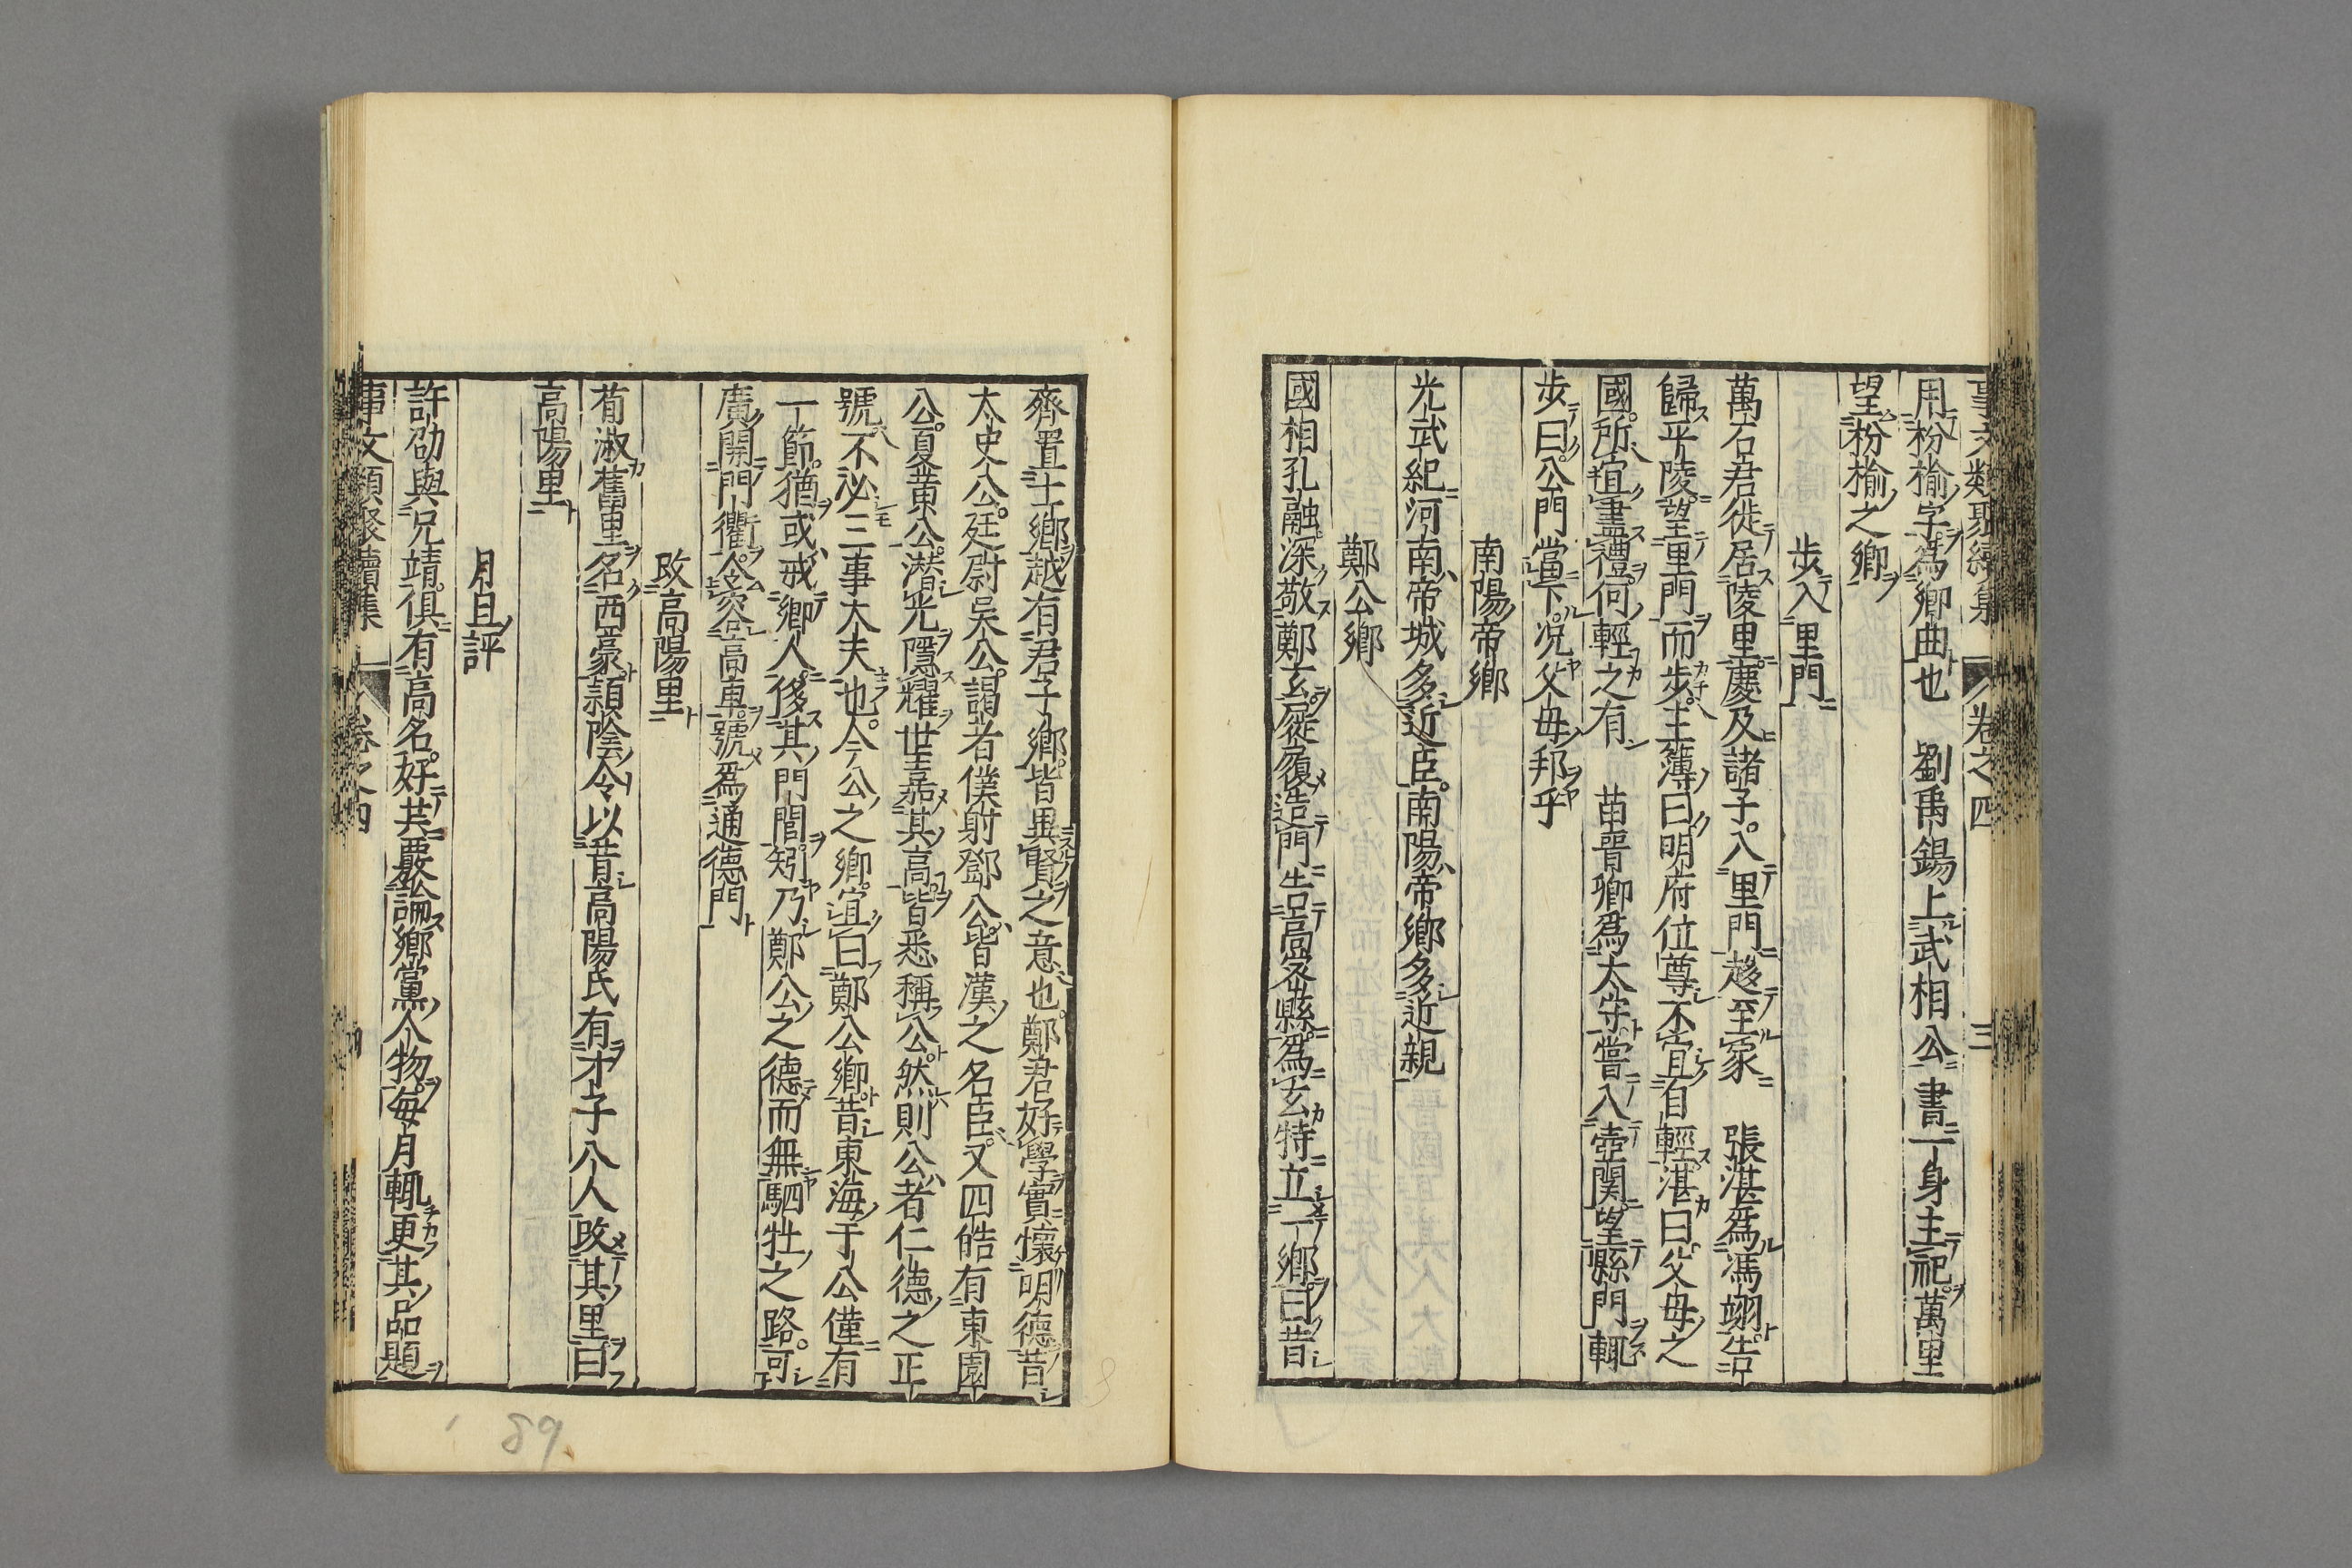 事文類聚續集 卷之四 三
用枌榆字爲鄉曲也 劉禹錫上武相公書一身主祀萬里
望枌榆之鄉
步入里門
萬石君徙居陵里慶及諸子入里門趍至家 張湛爲馮翊告
歸平陵望里門而步主簿曰明府位尊不宜自輕湛曰父母之
國所宜盡禮何輕之有 苗晋卿爲太守嘗入壺関望縣門輙
步曰公門當下况父母邦乎
南陽帝鄉
光武紀河南帝城多近臣南陽帝鄉多近親
鄭公鄉
國相孔融深敬鄭玄屣履造門告高密縣爲玄特立一鄉曰昔
齊置士鄉越有君子鄉皆異賢之意也鄭君好學實懷明德昔
大史公廷尉吳公謁者僕射鄧公皆漢之名臣又四皓有東園
公夏黄公潜光隱耀世嘉其高皆悉稱公然則公者仁德之正
號不必三事大夫也今公之鄉宜曰鄭公鄉昔東海于公僅有
一節猶或戒鄉人侈其門閭矧乃鄭公之德而無駟牡之路可
廣開門衢令容高車號爲通德門
改高陽里
荀淑舊里名西豪潁陰令以昔高陽氏有才子八人改其里曰
高陽里
月旦評
許劭與兄靖俱有高名好共覈論鄉黨人物每月輙更其品題
事文類聚續集 卷之四
89